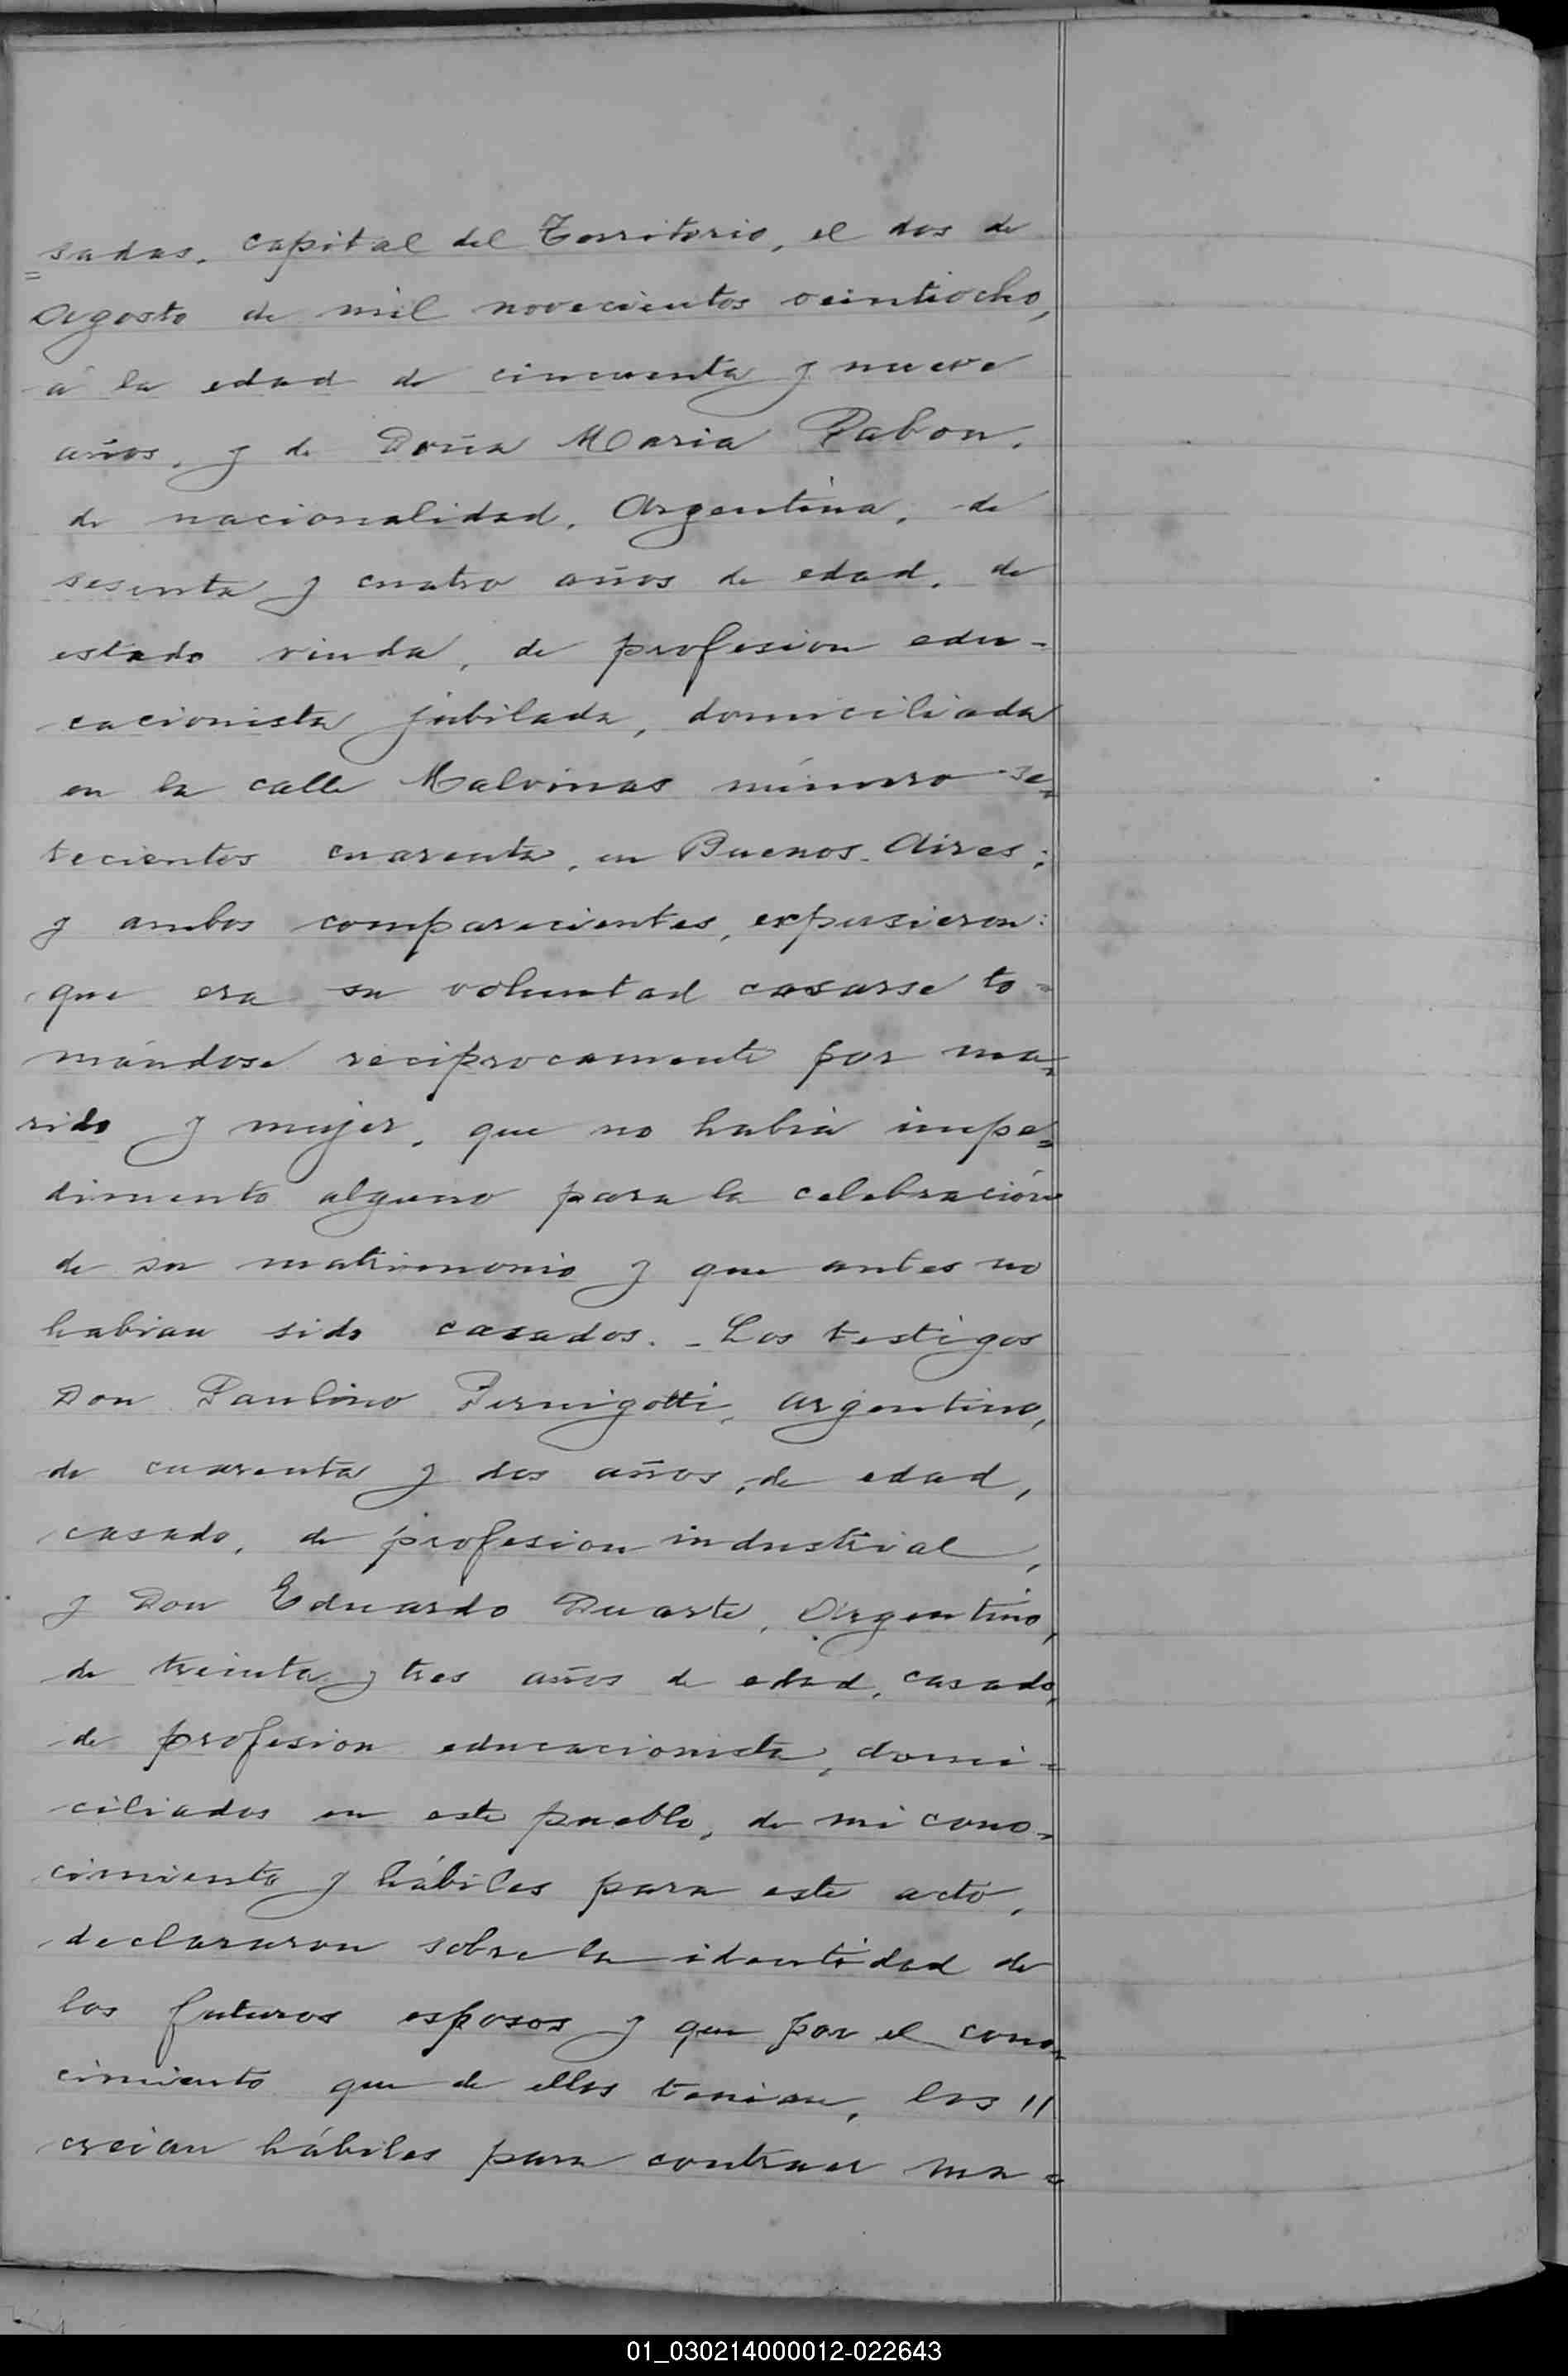 =sadas, capital del Territorio, el dos de
Agosto de mil novecientos veintiocho,
á la edad de cincuenta y nueve
años, y de Doña Maria Pabon,
de nacionalidad, Argentina, de
sesenta y cuatro años de edad, de
estado viuda, de profesion edu-
cacionista jubilada, domiciliada
en la calle Malvinas número se=
tecientos cuarenta, en Buenos Aires;
y ambos comparecientes, expusieron:
que era su voluntad casarse to=
mándose reciprocamente por ma=
rido y mujer, que no habia impe=
dimento alguno para la celebración
de su matrimonio y que antes no
habian sido casados. - Los testigos
Don Paulino Pernigotti, argentino,
de cuarenta y dos años, de edad,
casado, de profesion industrial,
y Don Eduardo Duarte, Argentino,
de treinta y tres años de edad, casado,
de profesion educacionista, domi=
ciliados en este pueblo, de mi cono=
cimiento y hábiles para este acto,
declararon sobre la identidad de
los futuros esposos y que por el cono=
cimiento que de ellos tenian, los //
creian hábiles para contraer ma=
01_030214000012-022643